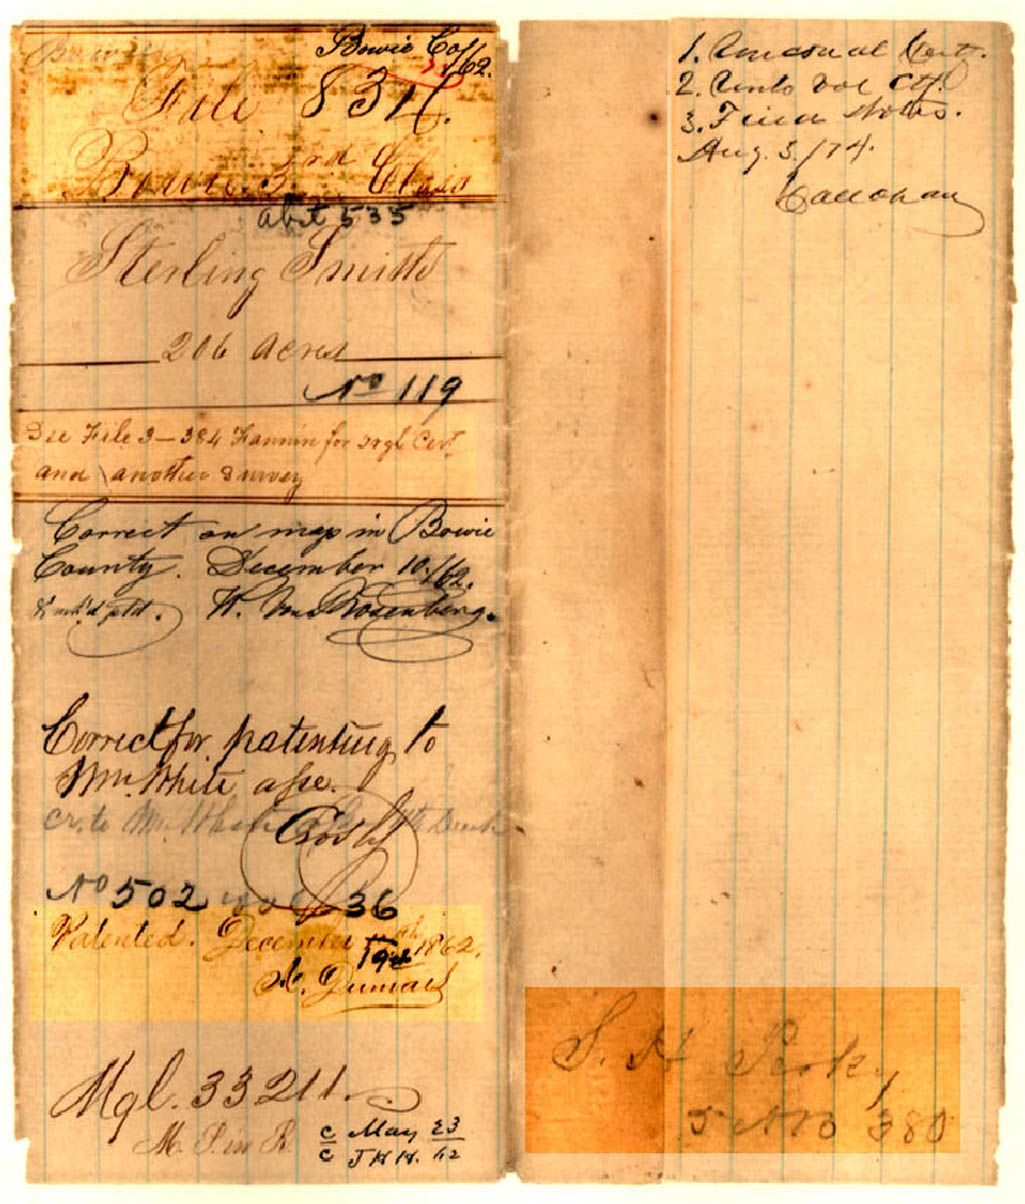 Bowie Co
/62.
File 831.
Bowie 3rd Class
abst 535
Sterling Smith
206 acres
No 119
See File 3-384 Fannin for orgl Cert
and another Survey
Correct on map in Bowie
County. December 10/62.
W. von Rosenberg.
Correct for patenting to
Wm. White asse.
cr. to Wm White
Crosby
No 502 vol 36
Patented. December 19th 1862.
Mgl. 33211.
M. P. in R.
c/c May 23
J H H. 62
1. Uncondl Cert.
2.
3. Field Notes.
Aug. 5/74.
Callohan
S. H
380